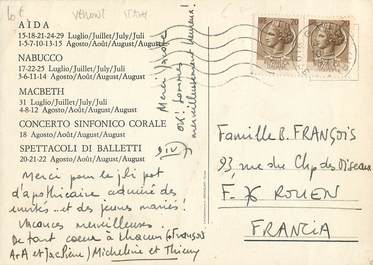 AIDA
15-18-21-24-29 Luglio/Juillet/July/Juli
1-5-7-10-13-15 Agosto/Août/August/August
NABUCCO
17-22-25 Luglio/Juillet/July/Juli
3-6-11-14 Agosto/Août/August/August
MACBETH
31 Luglio/Juillet/July/Juli
4-8-12 Agosto/Août/August/August
CONCERTO SINFONICO CORALE
18 Agosto/Août/August/August
SPETTACOLI DI BALLETTI
20-21-22 Agosto/Août/August/August
Merci
OK! Sommes
merveilleusement heureux!
Merci pour le joli pot
d'apothicaire admiré des
invités... et des jeunes mariés!
Vacances merveilleuses.
De tout coeur à chacun (François
et Jacqueline) Micheline et Thierry
Famille B. FRANÇOIS
93, rue du Chp des Oiseaux
F. ROUEN
FRANCIA